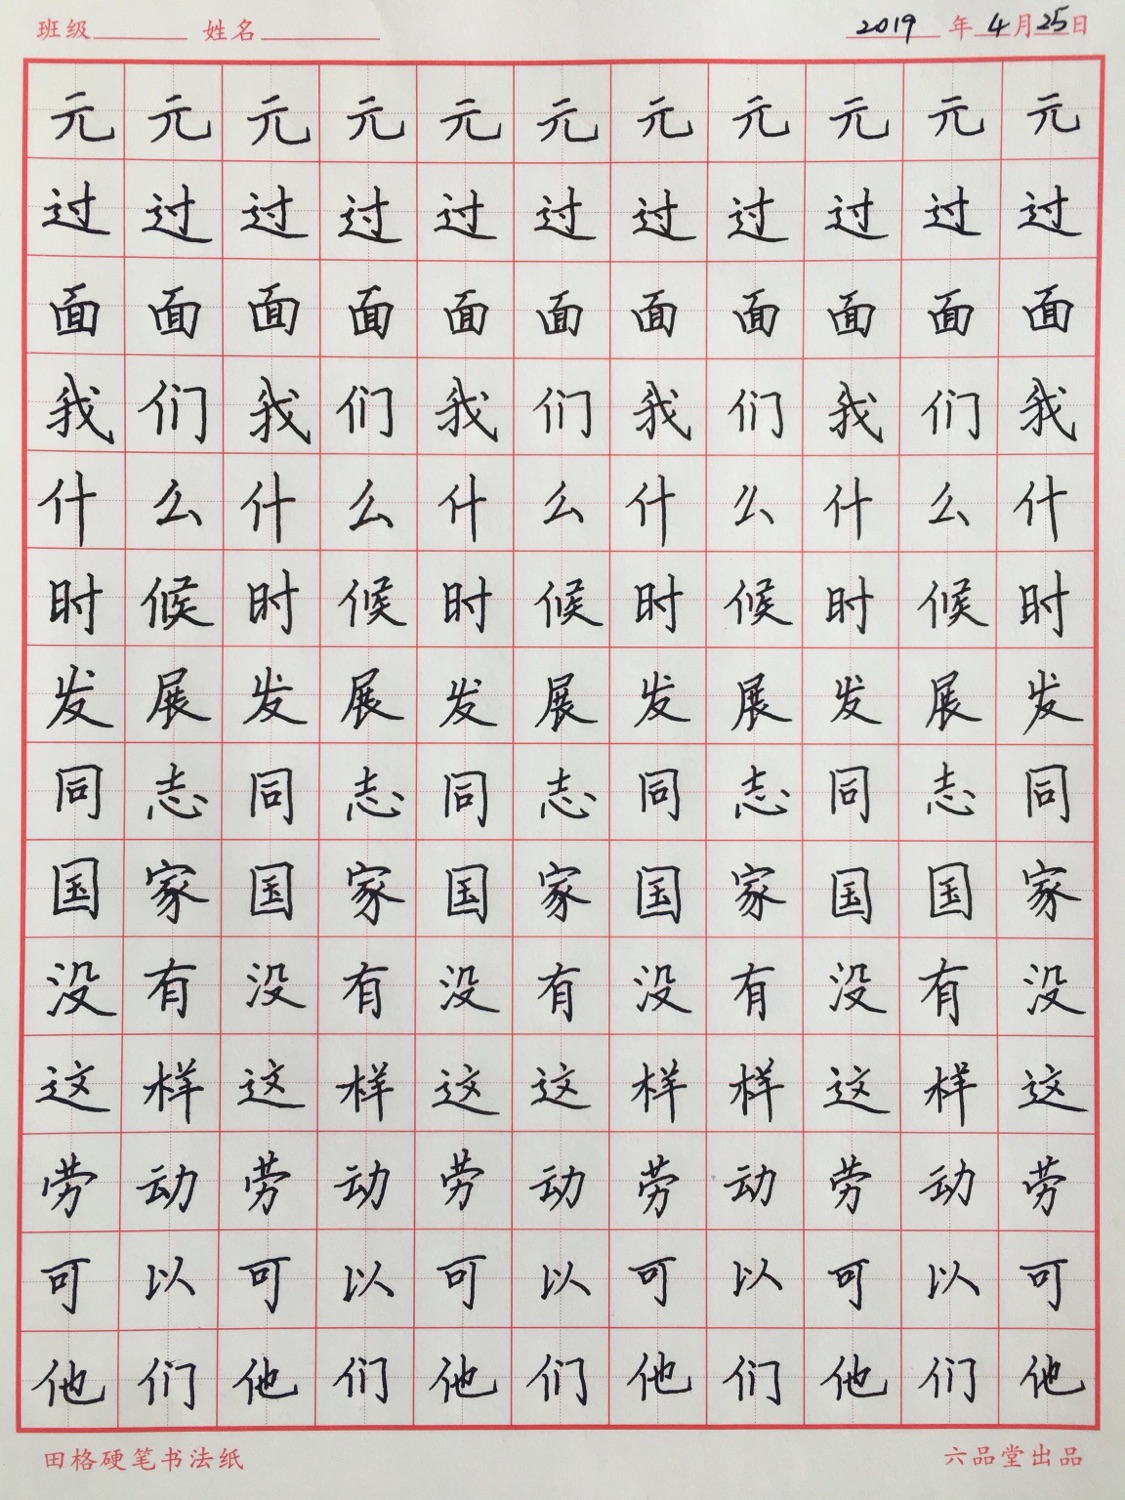 班级 姓名 2019年4月25日
元元元元元元元元元元元
过过过过过过过过过过过
面面面面面面面面面面面
我们我们我们我们我们我
什么什么什么什么什么什
时候时候时候时候时候时
发展发展发展发展发展发
同志同志同志同志同志同
国家国家国家国家国国家
没有没有没有没有没有没
这样这样这这样样这样这
劳动劳动劳动劳动劳动劳
可以可以可以可以可以可
他们他们他们他们他们他
田格硬笔书法纸 六品堂出品